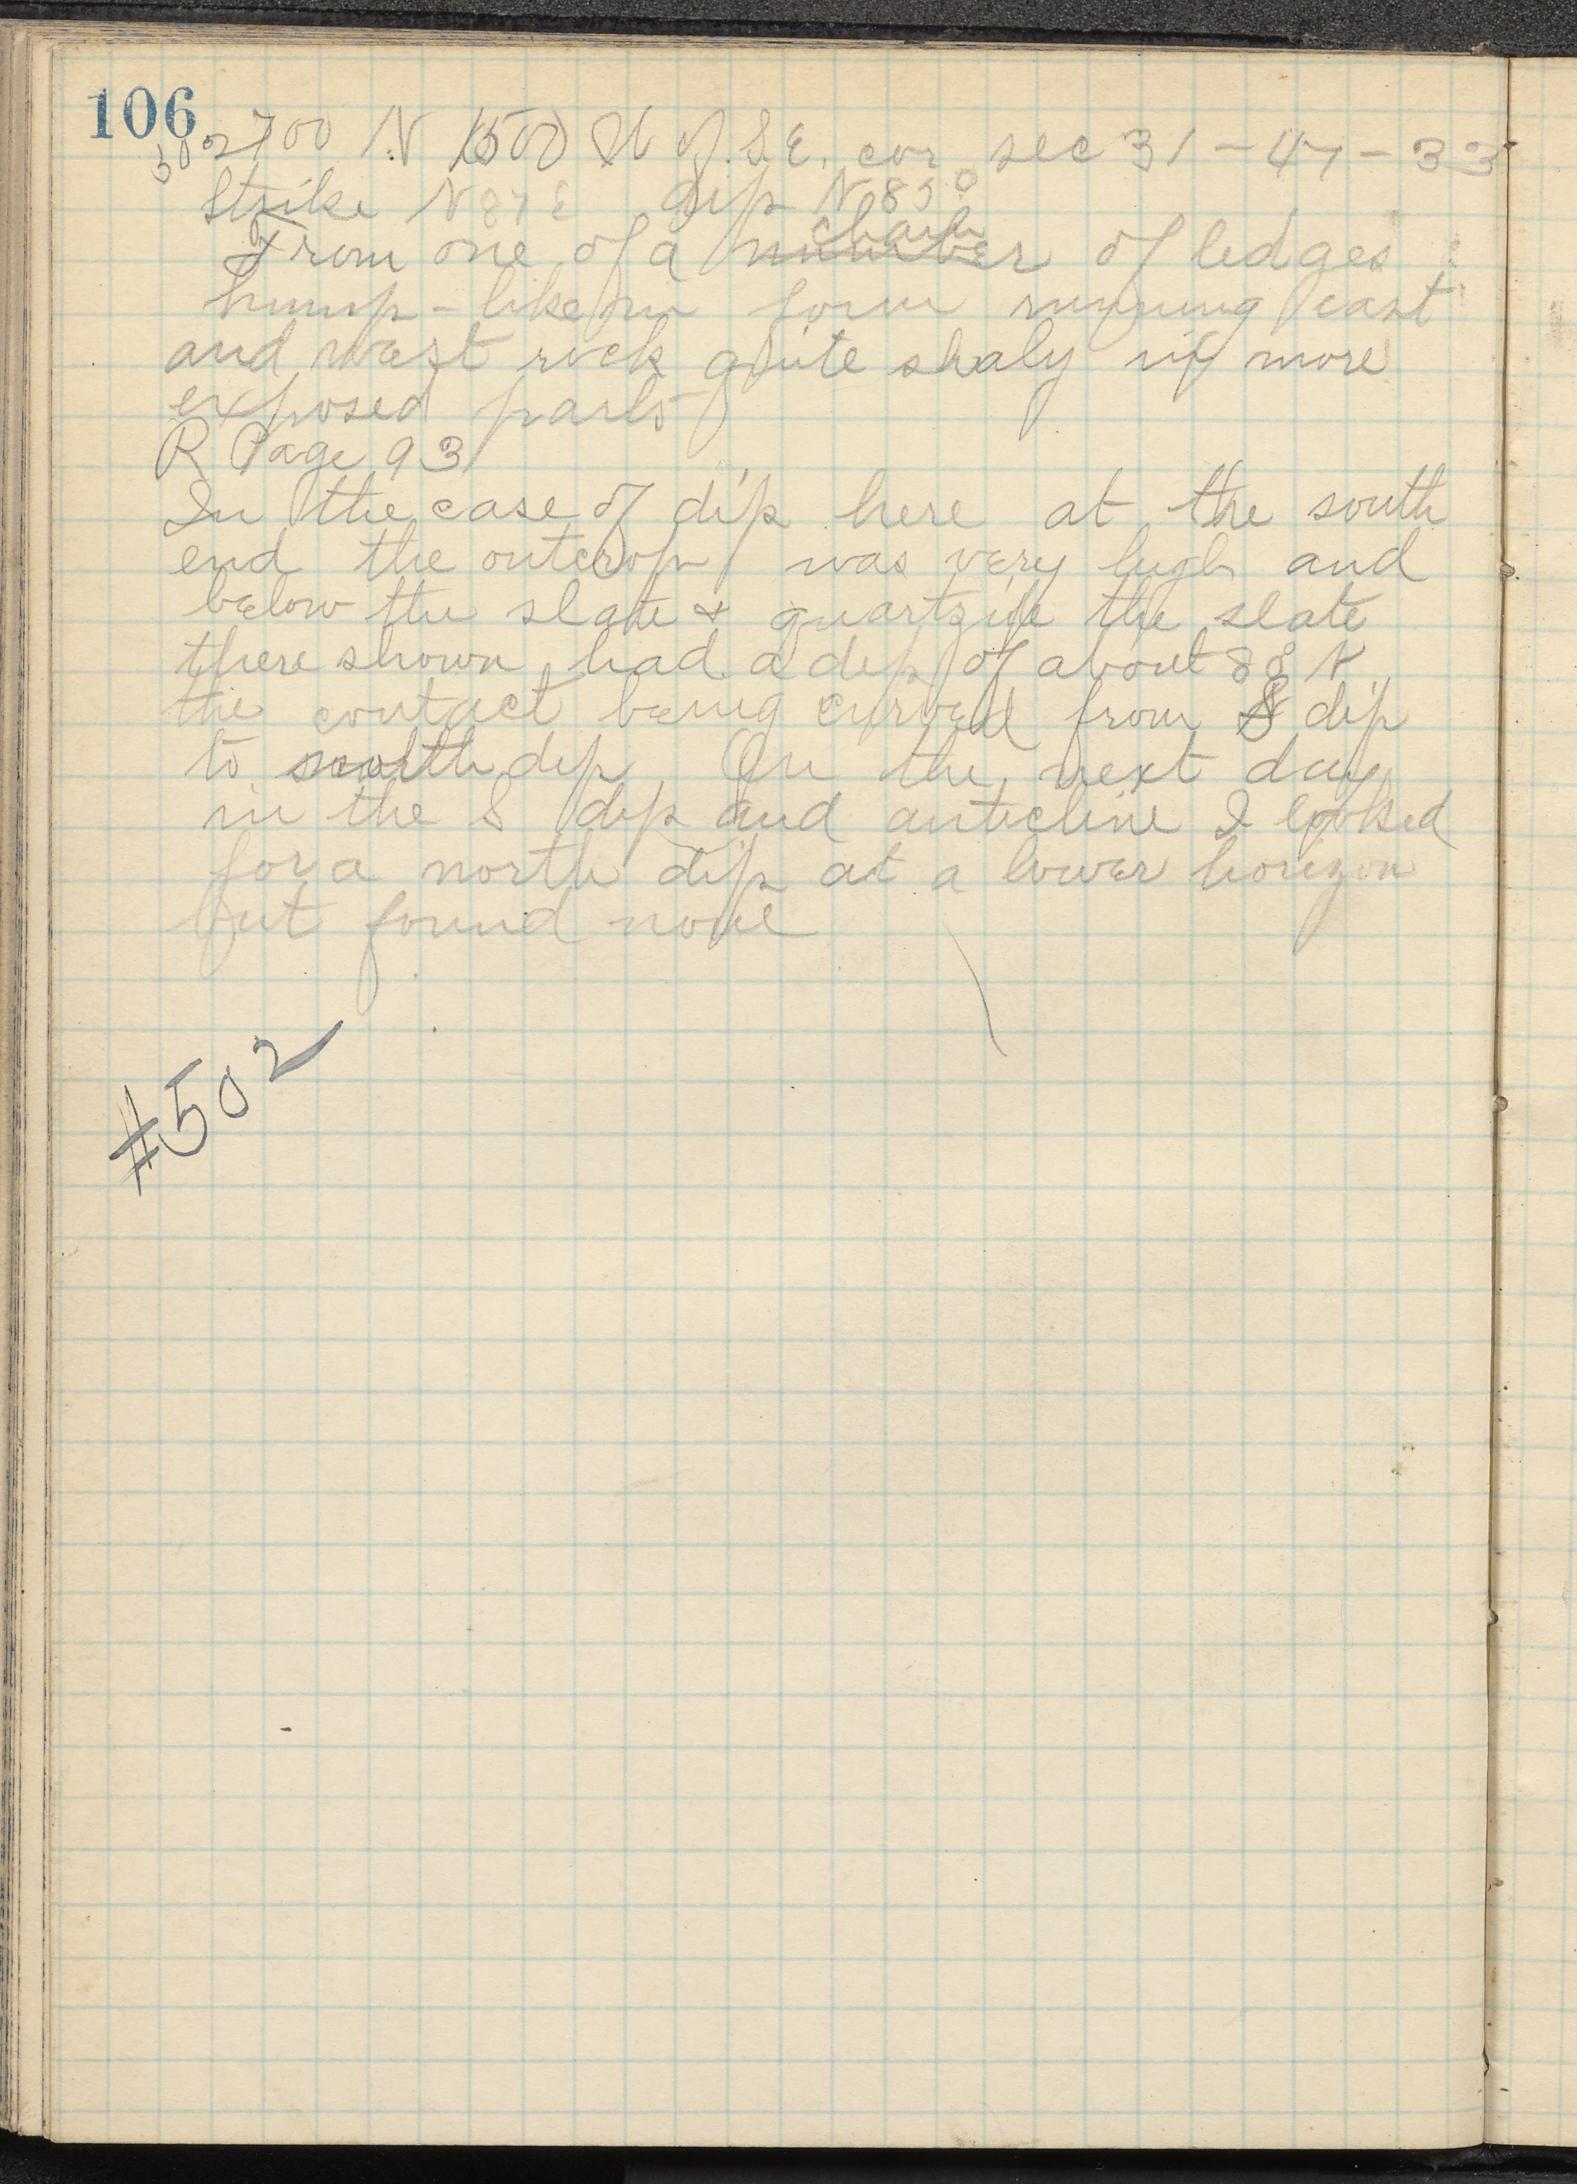 106
502 2700 N 1500 W of S.E. cor sec 31 - 47 - 33
Strike N 87 E dip N 85°
chain
From one of a number of ledges
hump-like in form running east
and west rock quite shaly in more
exposed parts
R Page 93
In the case of dip here at the south
end the outcrop was very high and
below the slate & quartzite the slate
there shown had a dip of about 88 N
the contact being curved from S dip
to north dip. On the next day
in the S dip and anticline I looked
for a north dip at a lower horizon
but found none
#502